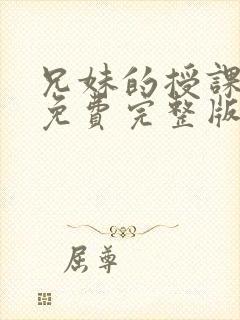 兄妹的授課
免費完整版
屈尊